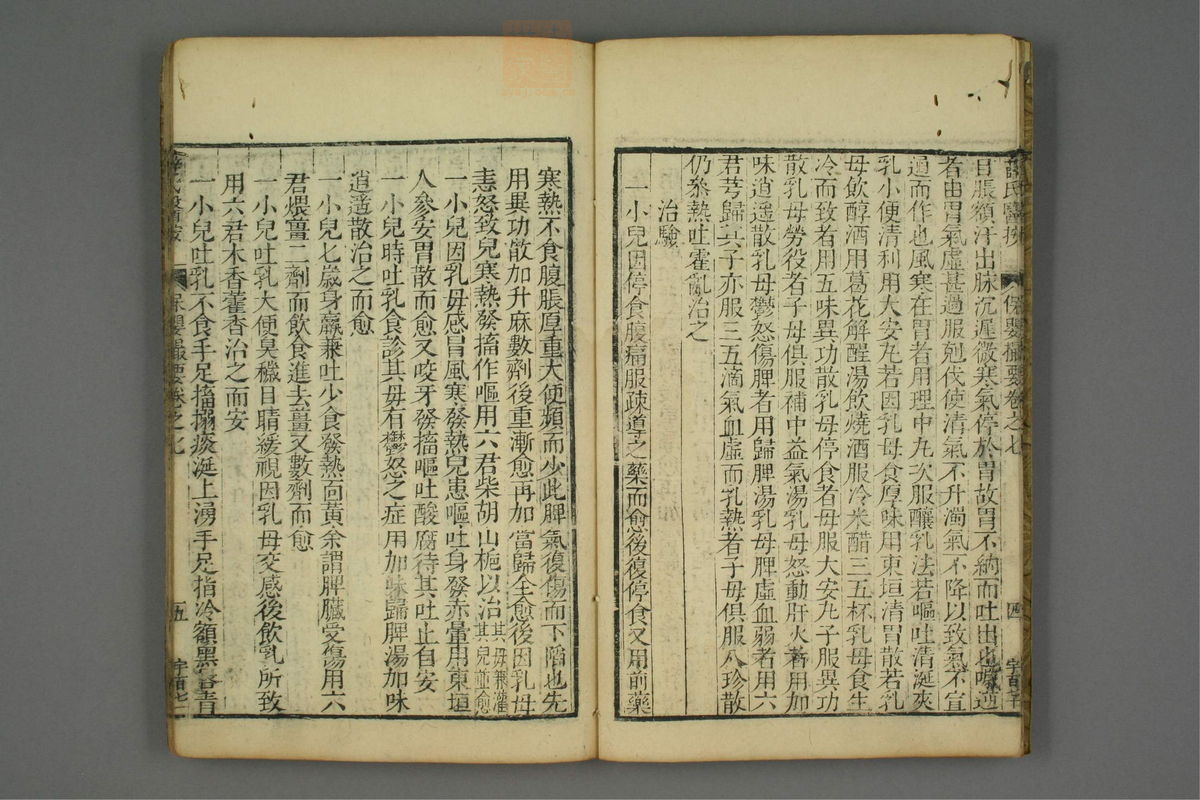 薛氏醫按
保嬰撮要卷之七
四
目脹額汗出脉沉遲微寒氣停於胃故胃不納而吐出也噦逆
者由胃氣虛甚過服剋伐使清氣不升濁氣不降以致氣不宣
通而作也風寒在胃者用理中丸次服釀乳法若嘔吐清涎夾
乳小便清利用大安丸若因乳母食厚味用東垣清胃散若乳
母飲醇酒用葛花解醒湯飲燒酒服冷米醋三五杯乳母食生
冷而致者用五味異功散乳母停食者母服大安丸子服異功
散乳母勞役者子母俱服補中益氣湯乳母怒動肝火者用加
味逍遥散乳母鬱怒傷脾者用歸脾湯乳母脾虛血弱者用六
君芎歸其子亦服三五滴氣血虛而乳熱者子母俱服八珍散
仍參熱吐霍亂治之
治驗
一小兒因停食腹痛服疎導之藥而愈後復停食又用前藥
寒熱不食腹脹厚重大便頻而少此脾氣復傷而下陷也先
用異功散加升麻數劑後重漸愈再加當歸全愈後因乳母
恚怒致兒寒熱發搐作嘔用六君柴胡山梔以治其母兼灌其兒並愈
一小兒因乳母感冒風寒發熱兒患嘔吐身發赤暈用東垣
人參安胃散而愈又咬牙發搐嘔吐酸腐待其吐止自安
一小兒時吐乳食診其母有鬱怒之症用加味歸脾湯加味
逍遥散治之而愈
一小兒七歲身羸兼吐少食發熱面黃余謂脾臟受傷用六
君煨薑二劑而飲食進去薑又數劑而愈
一小兒吐乳大便臭穢目睛緩視因乳母交感後飲乳所致
用六君木香藿香治之而安
一小兒吐乳不食手足搐搦痰涎上湧手足指冷額黑唇青
保嬰撮要卷之七
五